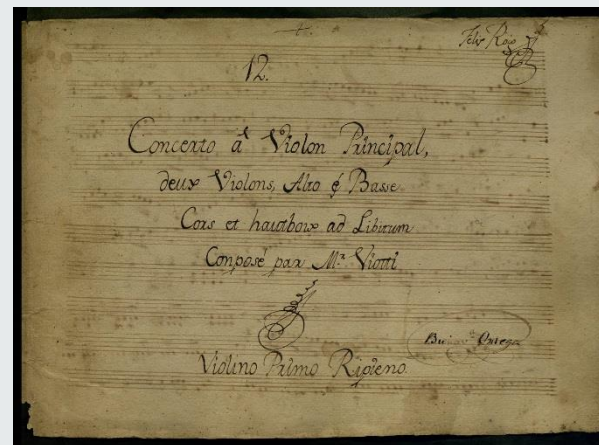 Felix Roig
12.
Concerto a Violon Principal,
deux Violons, Alto & Basse
Cors et hautbois ad Libitum
Conposé par Mr. Viotti
Ortega
Violino Primo Ripieno